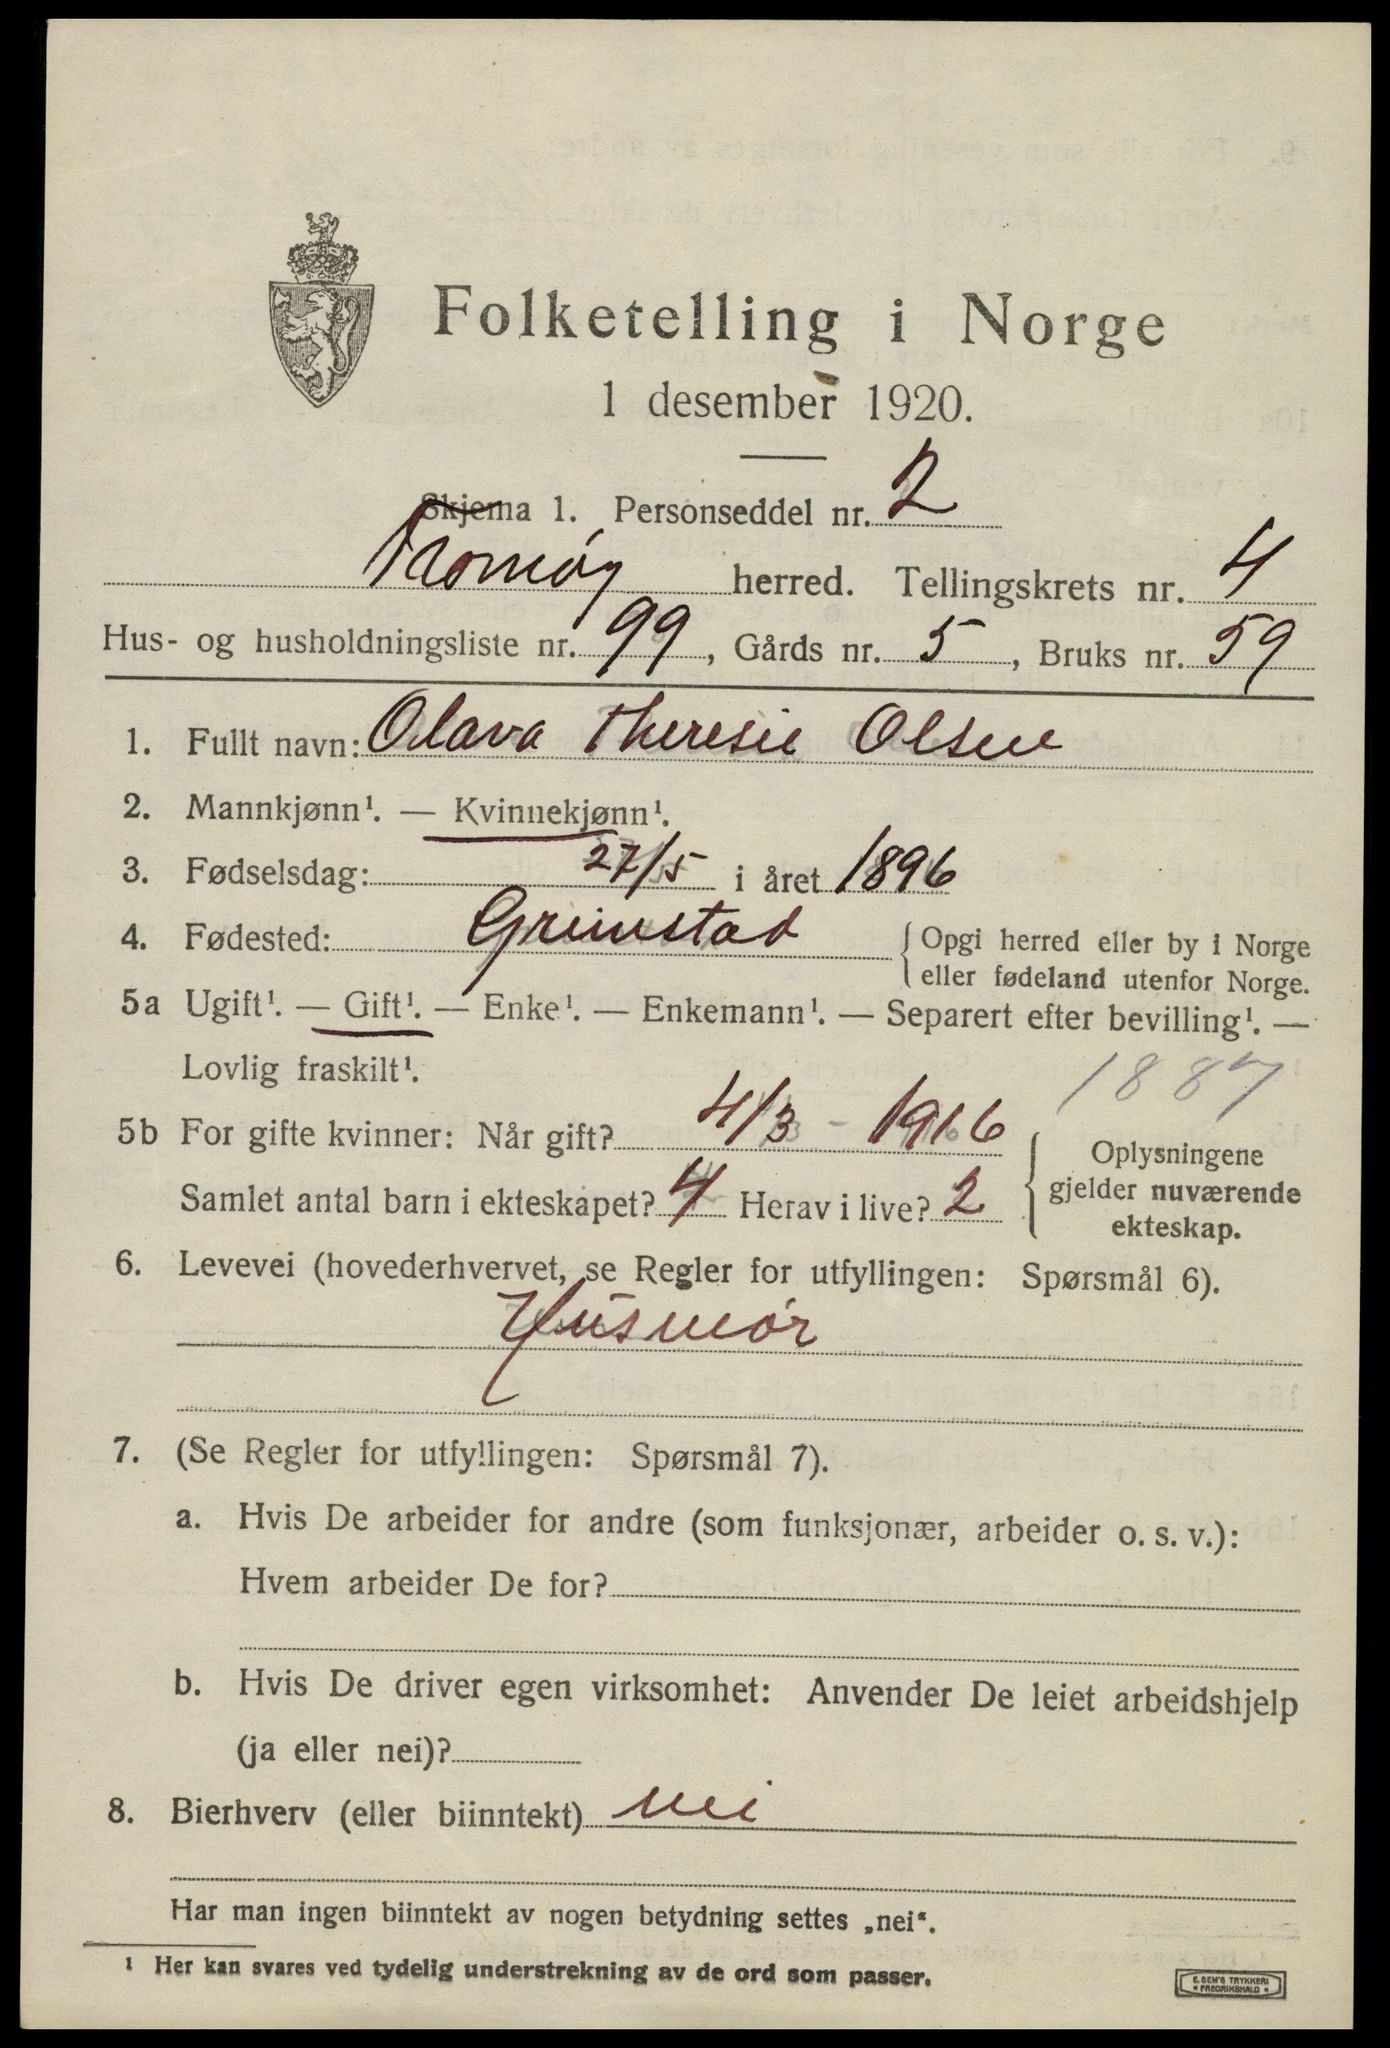 Folketelling i Norge
1 desember 1920.
Skjema 1. Personseddel nr. 2
Tromøy herred. Tellingskrets nr. 4
Hus- og husholdningsliste nr. 99, Gårds nr. 5, Bruks nr. 59
1. Fullt navn: Olava Theresie Olsen
2. Mannkjønn¹. — Kvinnekjønn¹.
3. Fødselsdag: 27/5 i året 1896
4. Fødested: Grimstad { Opgi herred eller by i Norge
eller fødeland utenfor Norge.
5a Ugift¹. — Gift¹. — Enke¹. — Enkemann¹. — Separert efter bevilling¹. —
Lovlig fraskilt¹. 1887
5b For gifte kvinner: Når gift? 4/3 - 1916
Samlet antal barn i ekteskapet? 4 Herav i live? 2
{ Oplysningene
gjelder nuværende
ekteskap.
6. Levevei (hovederhvervet, se Regler for utfyllingen: Spørsmål 6).
Husmor
7. (Se Regler for utfyllingen: Spørsmål 7).
a. Hvis De arbeider for andre (som funksjonær, arbeider o. s. v.):
Hvem arbeider De for?
b. Hvis De driver egen virksomhet: Anvender De leiet arbeidshjelp
(ja eller nei)?
8. Bierhverv (eller biinntekt) nei
Har man ingen biinntekt av nogen betydning settes „nei“.
¹ Her kan svares ved tydelig understrekning av de ord som passer.
E. SEM'S TRYKKERI
* FREDRIKSHALD *